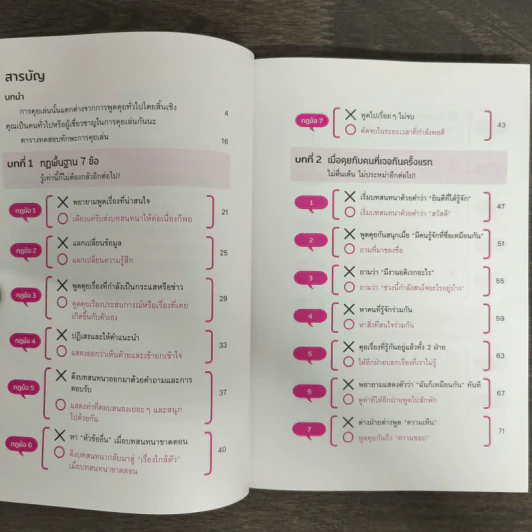 สารบัญ
บทนำ
การคุยเล่นนั้นแตกต่างจากการพูดคุยทั่วไปโดยสิ้นเชิง 4
คุณเป็นคนทั่วไปหรือผู้เชี่ยวชาญในการคุยเล่นกันนะ
ตารางทดสอบทักษะการคุยเล่น 16
บทที่ 1 กฎพื้นฐาน 7 ข้อ
รู้เท่านี้ก็ไม่ต้องกลัวอีกต่อไป!
กฎข้อ 1 พยายามพูดเรื่องที่น่าสนใจ 21
เพียงแค่รับส่งบทสนทนาให้ต่อเนื่องก็พอ
กฎข้อ 2 แลกเปลี่ยนข้อมูล 25
แลกเปลี่ยนความรู้สึก
กฎข้อ 3 พูดคุยเรื่องที่กำลังเป็นกระแสหรือข่าว 29
พูดคุยเรื่องประสบการณ์หรือเรื่องที่เคย
เกิดขึ้นกับตัวเอง
กฎข้อ 4 ปฏิเสธและให้คำแนะนำ 33
แสดงออกว่าเห็นด้วยและเข้าอกเข้าใจ
กฎข้อ 5 ดึงบทสนทนาออกมาด้วยคำถามและการ
ตอบรับ 37
แสดงท่าทีตอบสนองเยอะ ๆ และสนุก
ไปด้วยกัน
กฎข้อ 6 หา "หัวข้ออื่น" เมื่อบทสนทนาขาดตอน 40
ดึงบทสนทนากลับมาสู่ "เรื่องใกล้ตัว"
เมื่อบทสนทนาขาดตอน
กฎข้อ 7 พูดไปเรื่อย ๆ ไม่จบ 43
ตัดจบในระยะเวลาที่กำลังพอดี
บทที่ 2 เมื่อคุยกับคนที่เจอกันครั้งแรก
ไม่ตื่นเต้น ไม่ประหม่าอีกต่อไป!
1 เริ่มบทสนทนาด้วยคำว่า "ยินดีที่ได้รู้จัก" 47
เริ่มบทสนทนาด้วยคำว่า "สวัสดี"
2 พูดคุยกันสนุกเมื่อ "มีคนรู้จักที่ชื่อเหมือนกัน" 51
ถามที่มาของชื่อ
3 ถามว่า "มีงานอดิเรกอะไร" 55
ถามว่า "ช่วงนี้กำลังสนใจอะไรอยู่บ้าง"
4 หาคนที่รู้จักร่วมกัน 59
หาสิ่งที่สนใจร่วมกัน
5 คุยเรื่องที่รู้กันอยู่แล้วทั้ง 2 ฝ่าย 63
ให้อีกฝ่ายบอกเรื่องที่เราไม่รู้
6 พยายามแสดงตัวว่า "ฉันก็เหมือนกัน" ทันที 67
ดูท่าทีให้อีกฝ่ายพูดไปสักพัก
7 ต่างฝ่ายต่างพูด "ความเห็น" 71
พูดคุยกันถึง "ความชอบ"